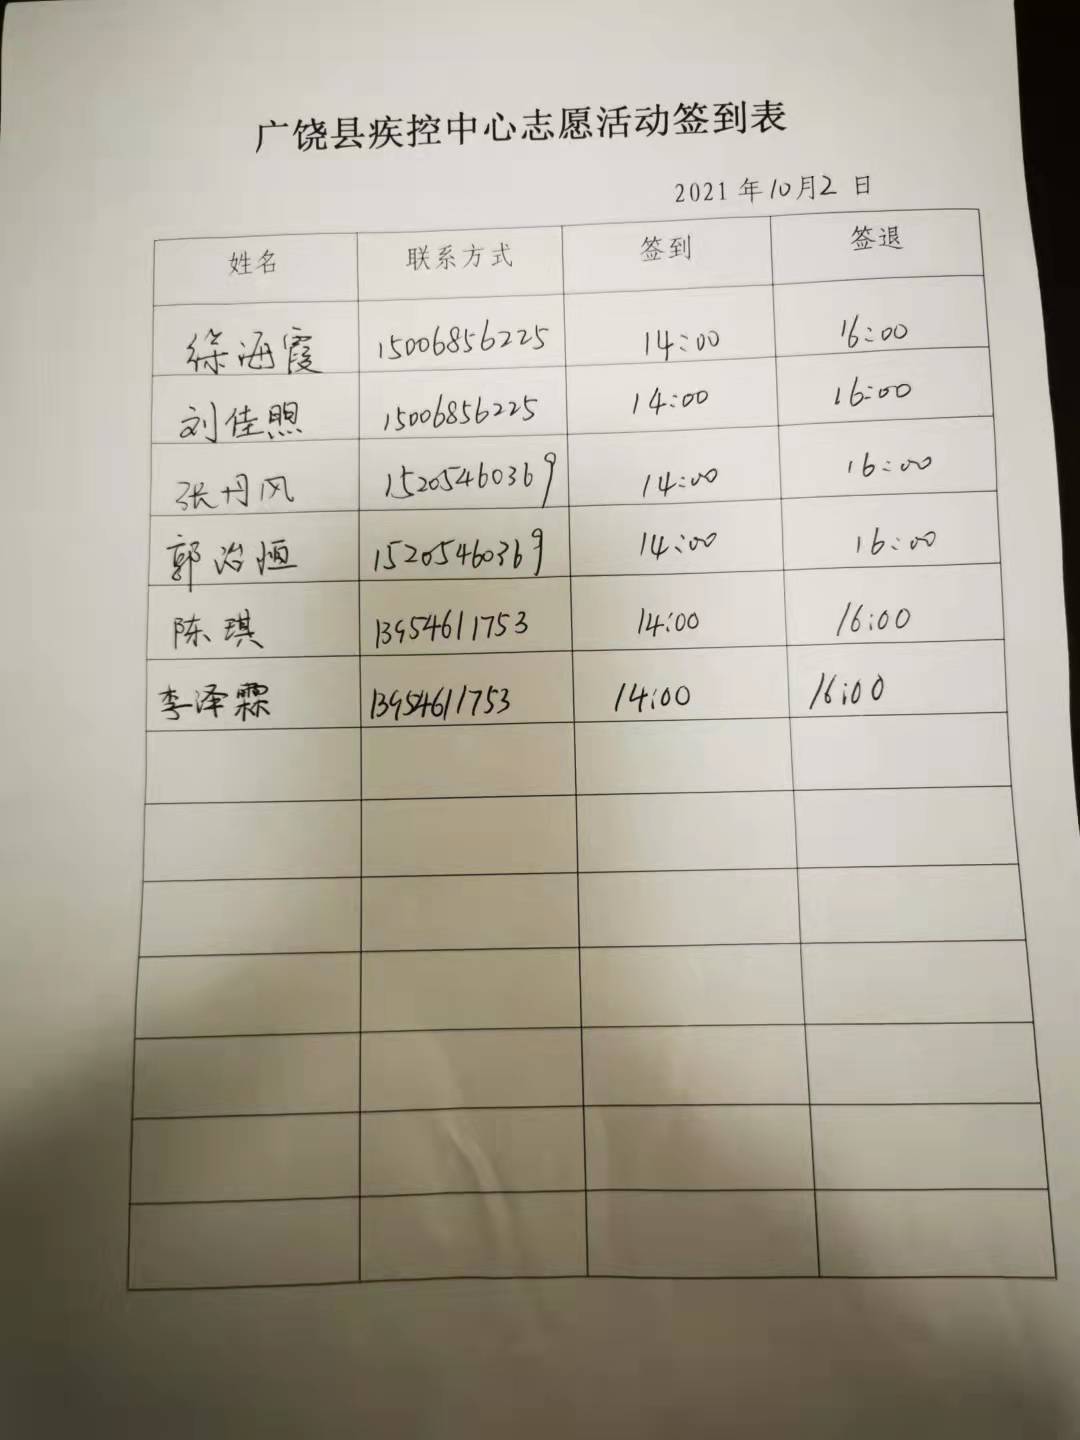 广饶县疾控中心志愿活动签到表
2021 年10月2 日
姓名 联系方式 签到 签退
徐海霞 15006856225 14:00 16:00
刘佳煦 15006856225 14:00 16:00
张丹风 15205460369 14:00 16:00
郭治恒 15205460369 14:00 16:00
陈琪 13954611753 14:00 16:00
李泽霖 13954611753 14:00 16:00